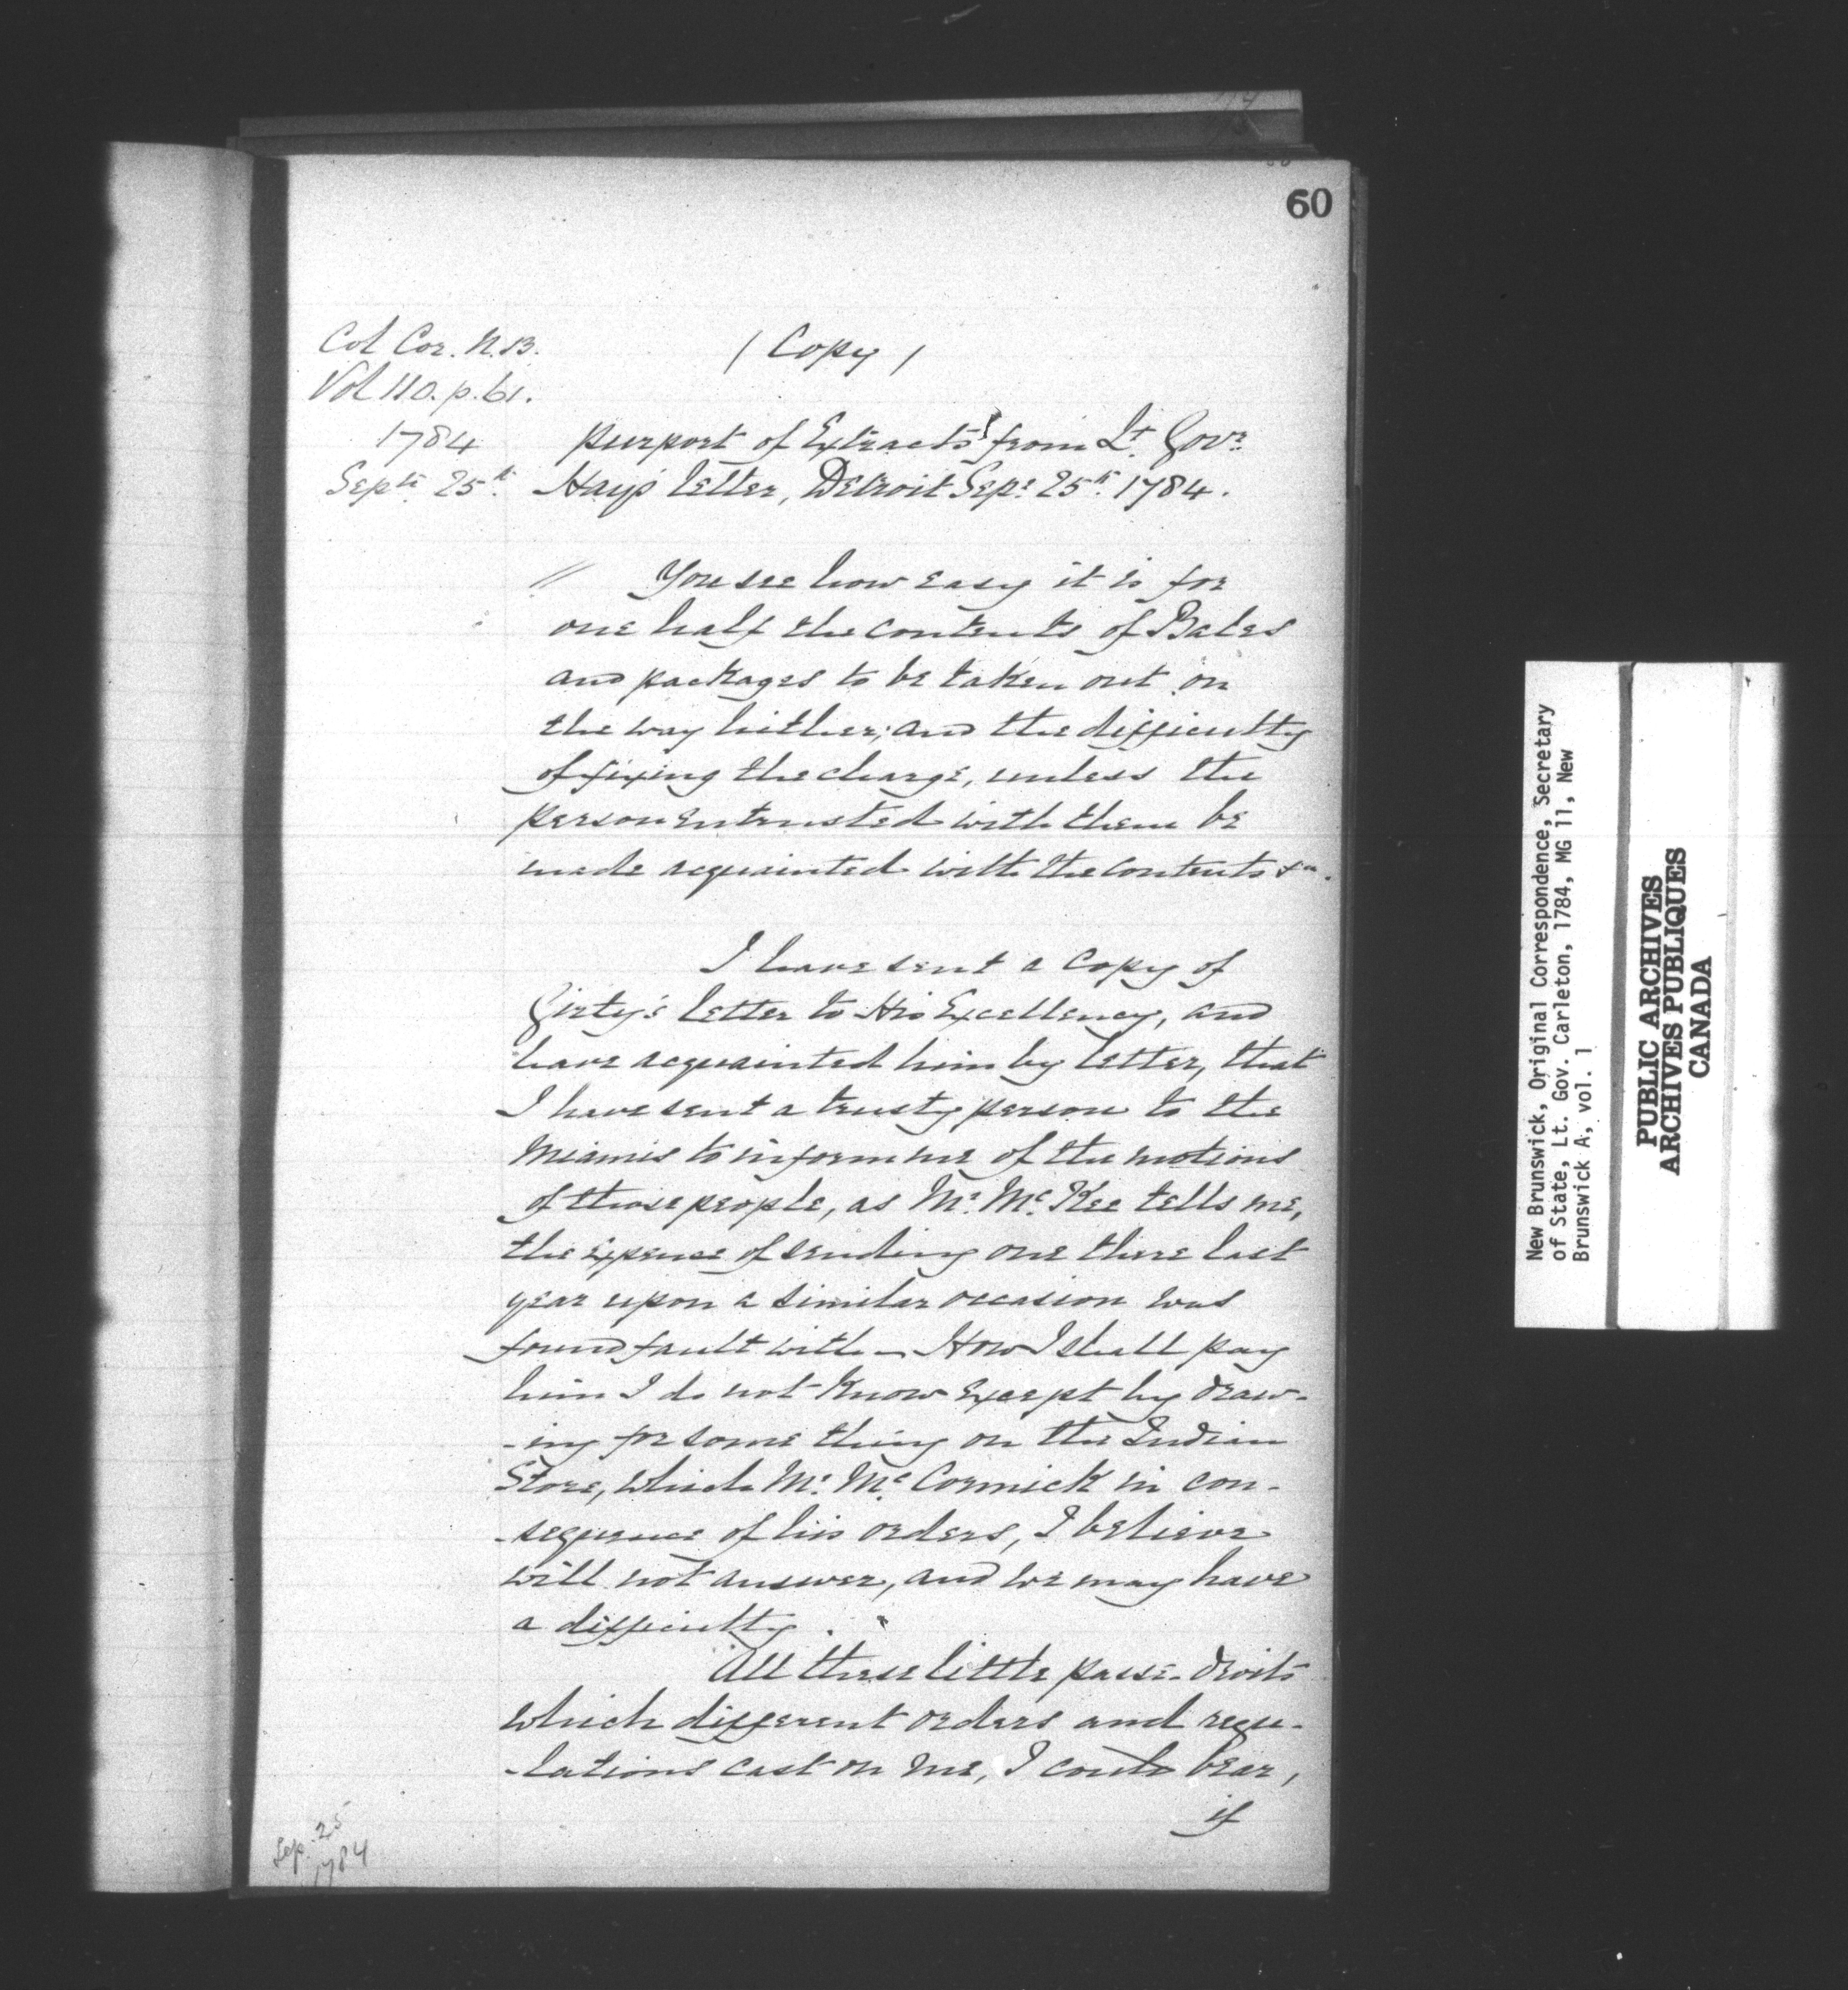 60
Col Cor. N.B.
Vol 110. p. 61.
1784
Septr 25th
(Copy)
purport of Extracts from Lt. Govr
Hays letter, Detroit Sepr 25th 1784.
" You see how easy it is for
one half the contents of Bales
and packages to be taken out on
the way hither; and the difficulty
of fixing the charge, unless the
person entrusted with them be
made acquainted with the contents &a.
I have sent a copy of
Girty's letter to His Excellency, and
have acquainted him by letter, that
I have sent a trusty person to the
Miamis to inform me of the motions
of those people, as Mr. McKee tells me,
the expence of sending one there last
year upon a similar occasion was
found fault with – How I shall pay
him I do not know except by draw-
-ing for some thing on the Indian
Store, which Mr. McCormick in con-
-sequence of his orders, I believe
will not answer, and we may have
a difficulty.
All these little passe-droits
which different orders and regu-
-lations cast on me, I could bear,
if
Sep. 25
1784
New Brunswick, Original Correspondence, Secretary
of State, Lt. Gov. Carleton, 1784, MG 11, New
Brunswick A, vol. 1
PUBLIC ARCHIVES
ARCHIVES PUBLIQUES
CANADA